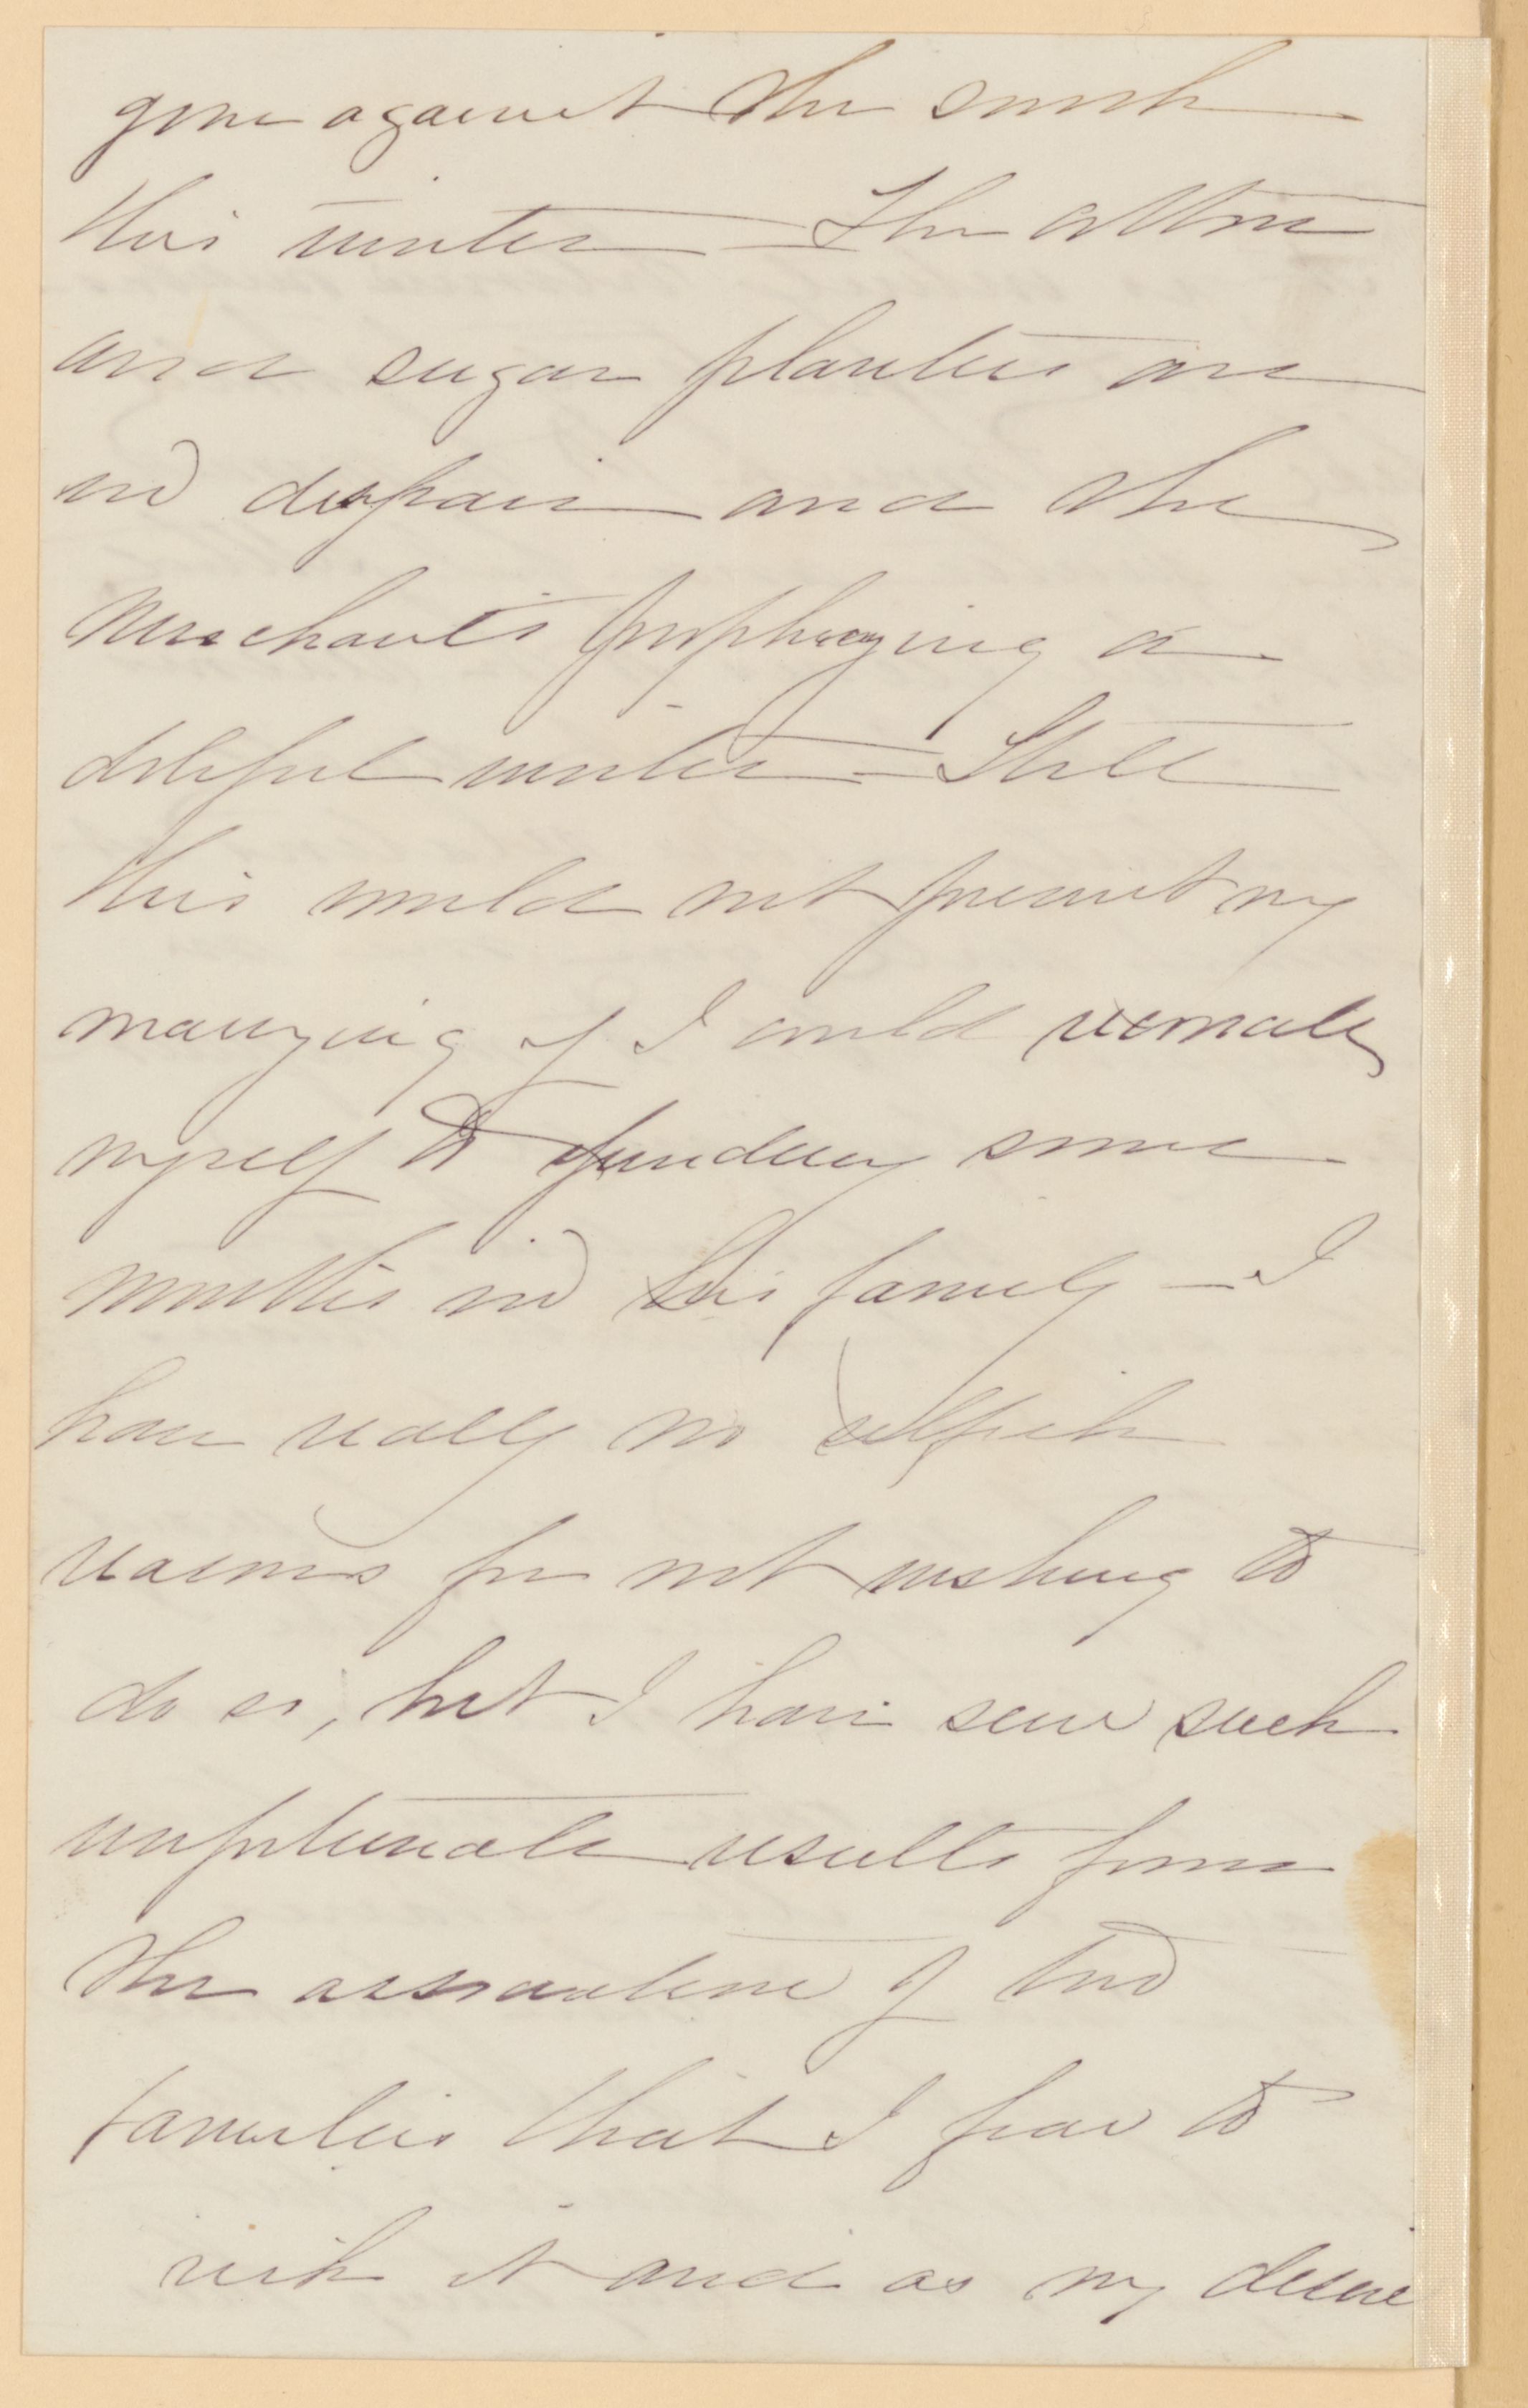 gone against the south
this winter – The cotton
and sugar planters are
in despair and the
merchants prophesying a
doleful winter – Still
this would not prevent my
marrying if I could reconcile
myself to spending some
months in his family – I
have really no selfish
reasons for not wishing to
do so, but I have seen such
unfortunate results from
the association of two
families that I fear to
risk it and as my desire